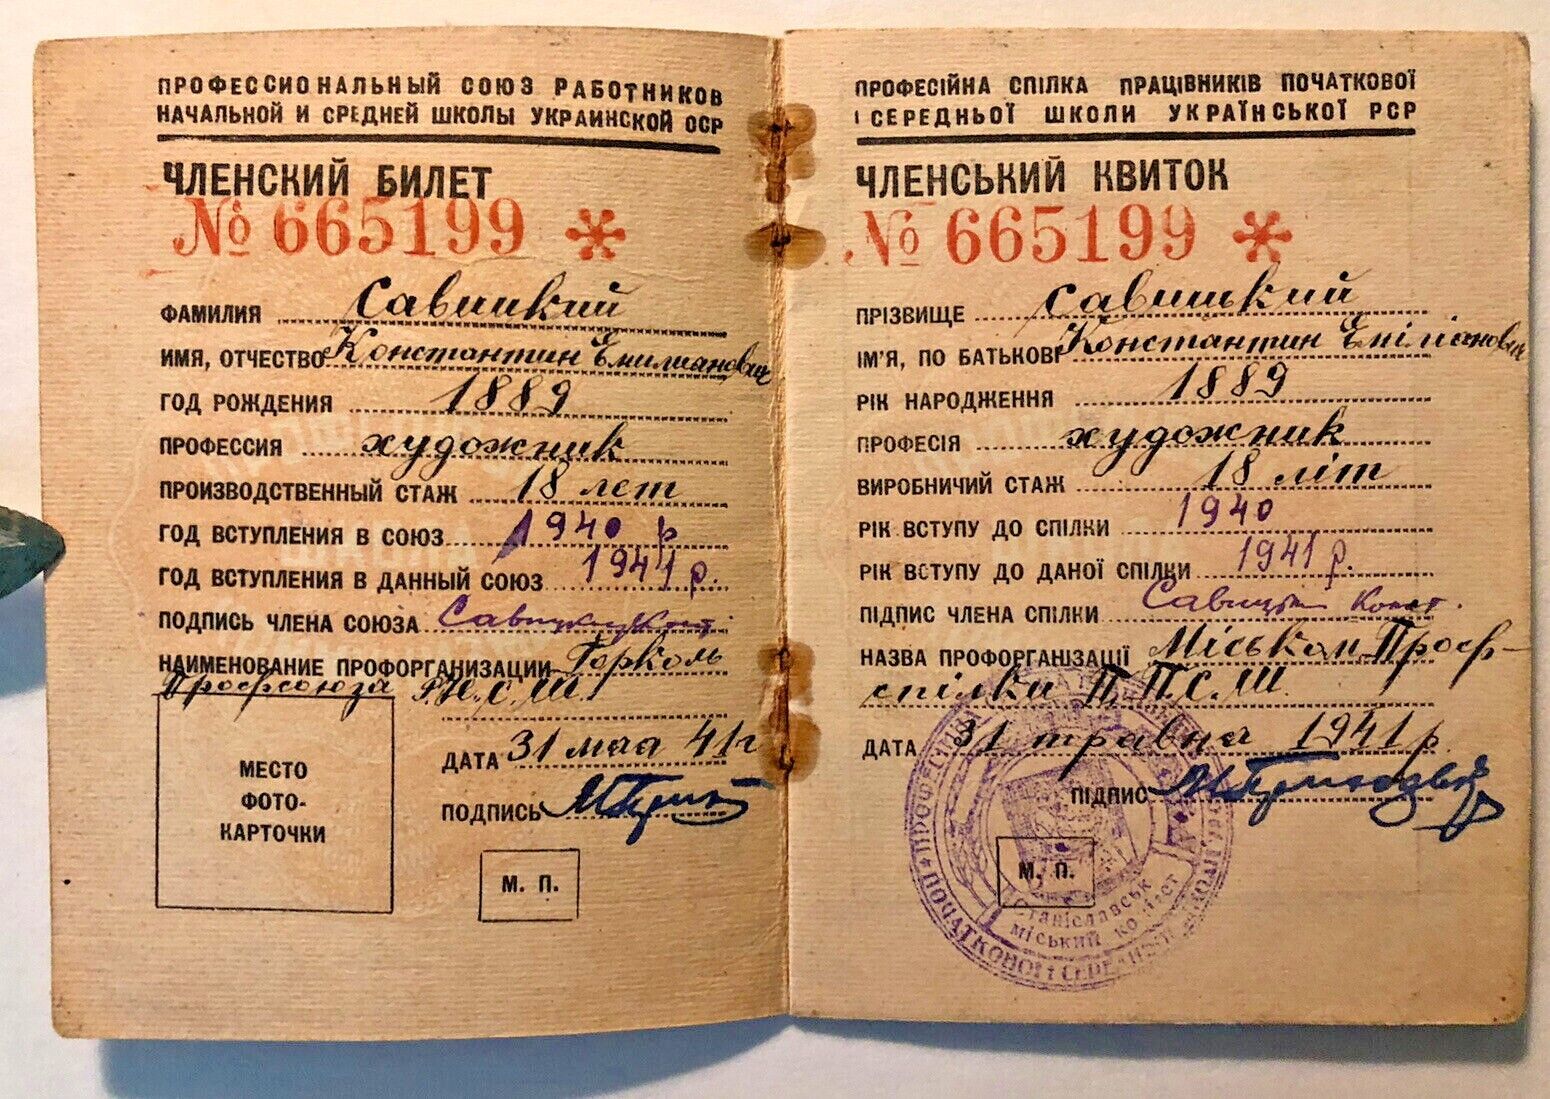 ПРОФЕССИОНАЛЬНЫЙ СОЮЗ РАБОТНИКОВ
НАЧАЛЬНОЙ И СРЕДНЕЙ ШКОЛЫ УКРАИНСКОЙ ССР
ЧЛЕНСКИЙ БИЛЕТ
№ 665199 *
ФАМИЛИЯ Савицкий
ИМЯ, ОТЧЕСТВО Константин Емилианович
ГОД РОЖДЕНИЯ 1889
ПРОФЕССИЯ художник
ПРОИЗВОДСТВЕННЫЙ СТАЖ 18 лет
ГОД ВСТУПЛЕНИЯ В СОЮЗ 1940 р
ГОД ВСТУПЛЕНИЯ В ДАННЫЙ СОЮЗ 1941 р.
ПОДПИСЬ ЧЛЕНА СОЮЗА
НАИМЕНОВАНИЕ ПРОФОРГАНИЗАЦИИ Горком
Профсоюза Р.Н.С.Ш.
МЕСТО
ФОТО-
КАРТОЧКИ
ДАТА 31 мая 41 г
ПОДПИСЬ
М. П.
ПРОФЕСІЙНА СПІЛКА ПРАЦІВНИКІВ ПОЧАТКОВОЇ
І СЕРЕДНЬОЇ ШКОЛИ УКРАЇНСЬКОЇ РСР
ЧЛЕНСЬКИЙ КВИТОК
№ 665199 *
ПРІЗВИЩЕ Савицький
ІМ'Я, ПО БАТЬКОВІ Константин Еміліанович
РІК НАРОДЖЕННЯ 1889
ПРОФЕСІЯ художник
ВИРОБНИЧИЙ СТАЖ 18 літ
РІК ВСТУПУ ДО СПІЛКИ 1940
РІК ВСТУПУ ДО ДАНОЇ СПІЛКИ 1941 р.
ПІДПИС ЧЛЕНА СПІЛКИ Конст.
НАЗВА ПРОФОРГАНІЗАЦІЇ Міськом Проф-
спілки П.П.С.Ш.
ДАТА 31 травня 1941 р.
ПІДПИС
М. П.
Станіславськ
міський комітет
ПОЧАТКОВОЇ І СЕРЕДНЬОЇ